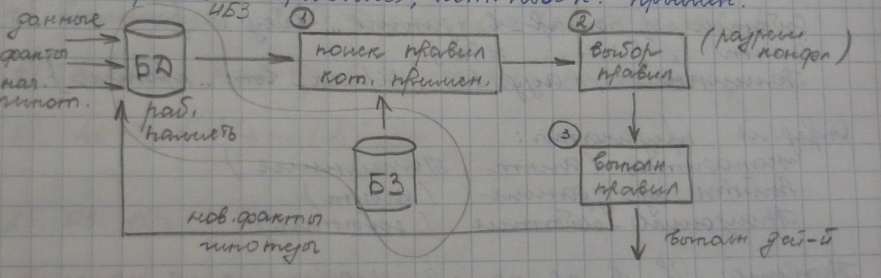 данные
факты
нач.
гипот.
БД
раб.
память
ЧБЗ
1
поиск правил
кот. примен.
2
выбор
правил
(разреш
конфл)
БЗ
3
выполн
правил
нов. факты
гипотезы
выполн дей-й